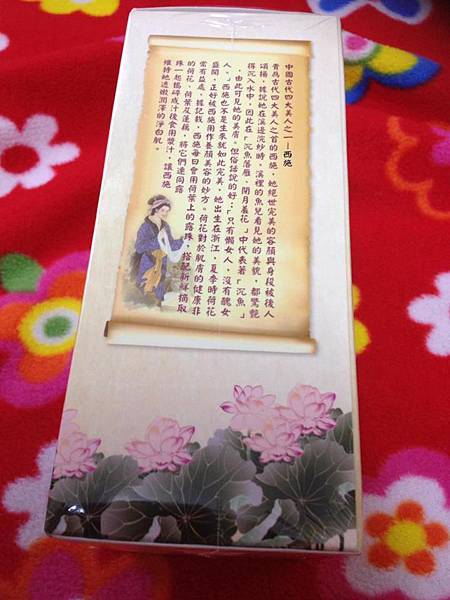 中國古代四大美人之一—西施
貴為古代四大美人之首的西施，她絕世完美的容顏與身段被後人
頌揚，據說她在溪邊浣紗時，溪裡的魚兒看見她的美貌，都驚艷
得沉入水中，因此在「沉魚落雁、閉月羞花」中代表著「沉魚」
，由此可見她的美。但俗話說的好：「只有懶女人，沒有醜女
人。」西施也不是生來就如此完美，她出生在浙江，夏季時荷花
盛開，正好被西施用作養顏美容的妙方。荷花對於肌膚的健康非
常有益處，據記載，西施每日會用荷葉上的露珠，搭配新鮮摘取
的荷花、荷葉及蓮藕，將它們連同露
珠一起搗碎成汁後食用漿汁，讓西施
維持她透嫩潤澤的淨白肌。